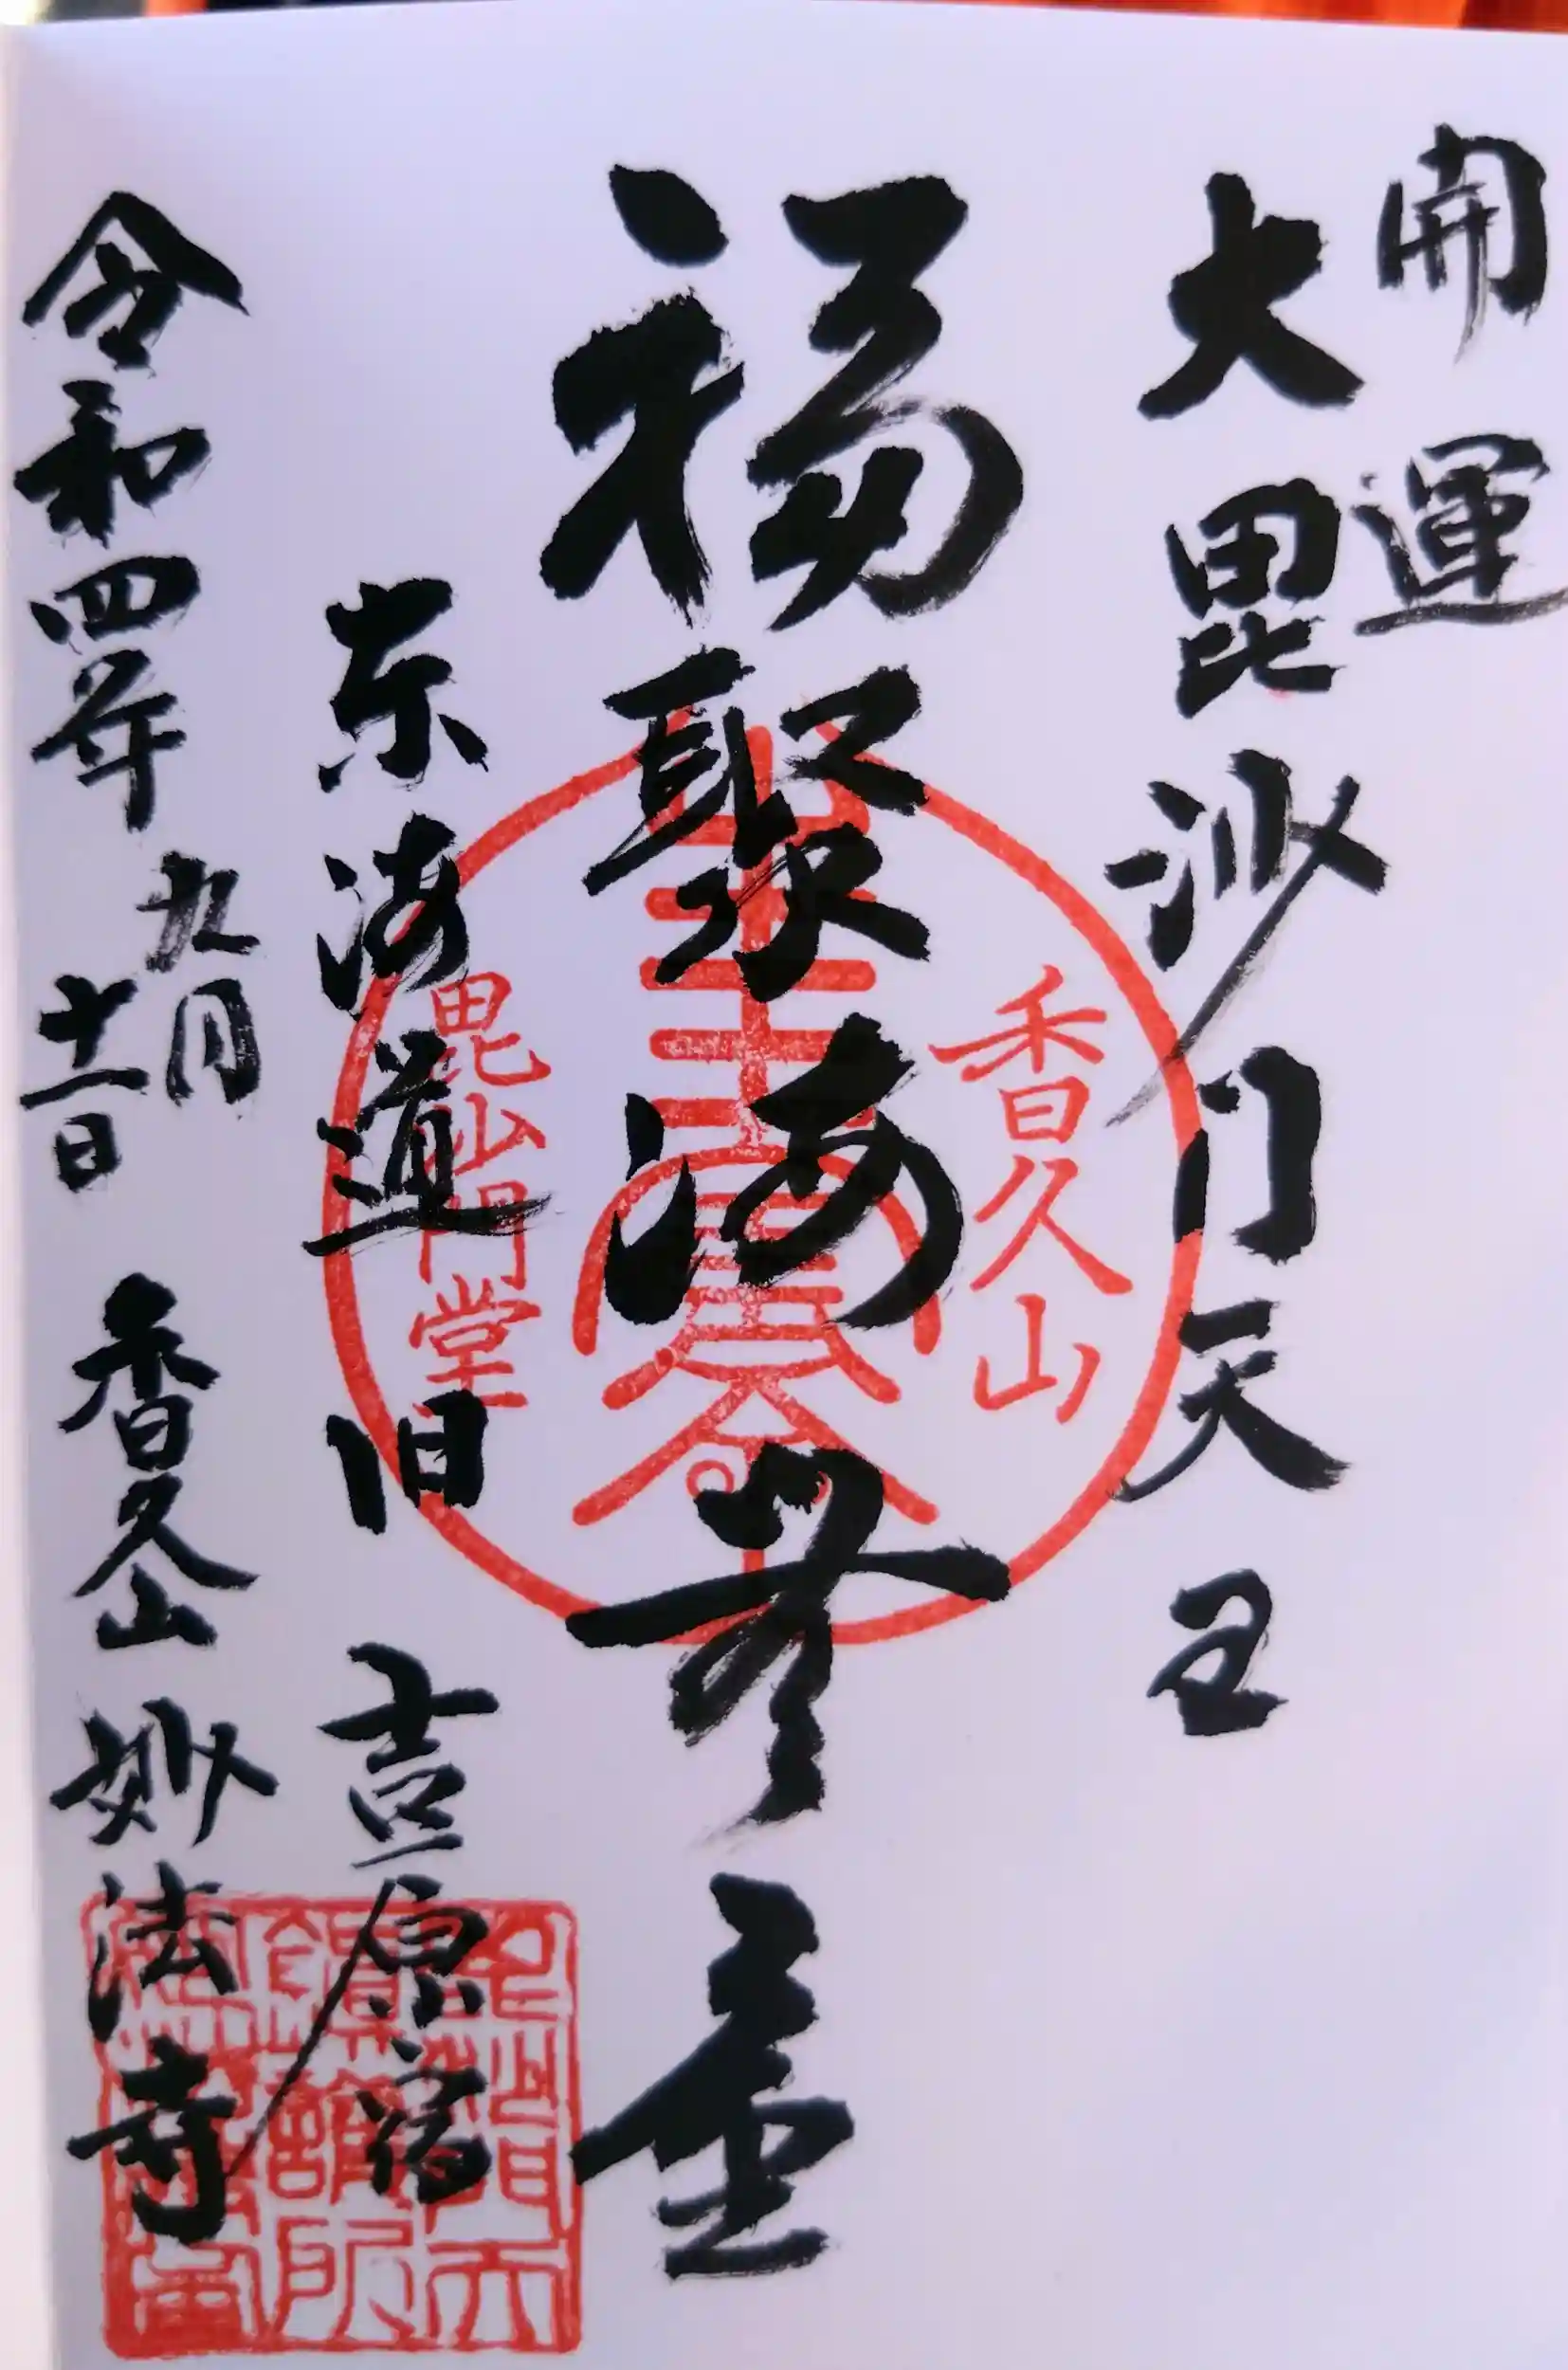 開運
大毘沙門天王
福聚海無量
東海道 旧 吉原宿
令和四年九月十一日 香久山 妙法寺
香久山
毘沙門堂